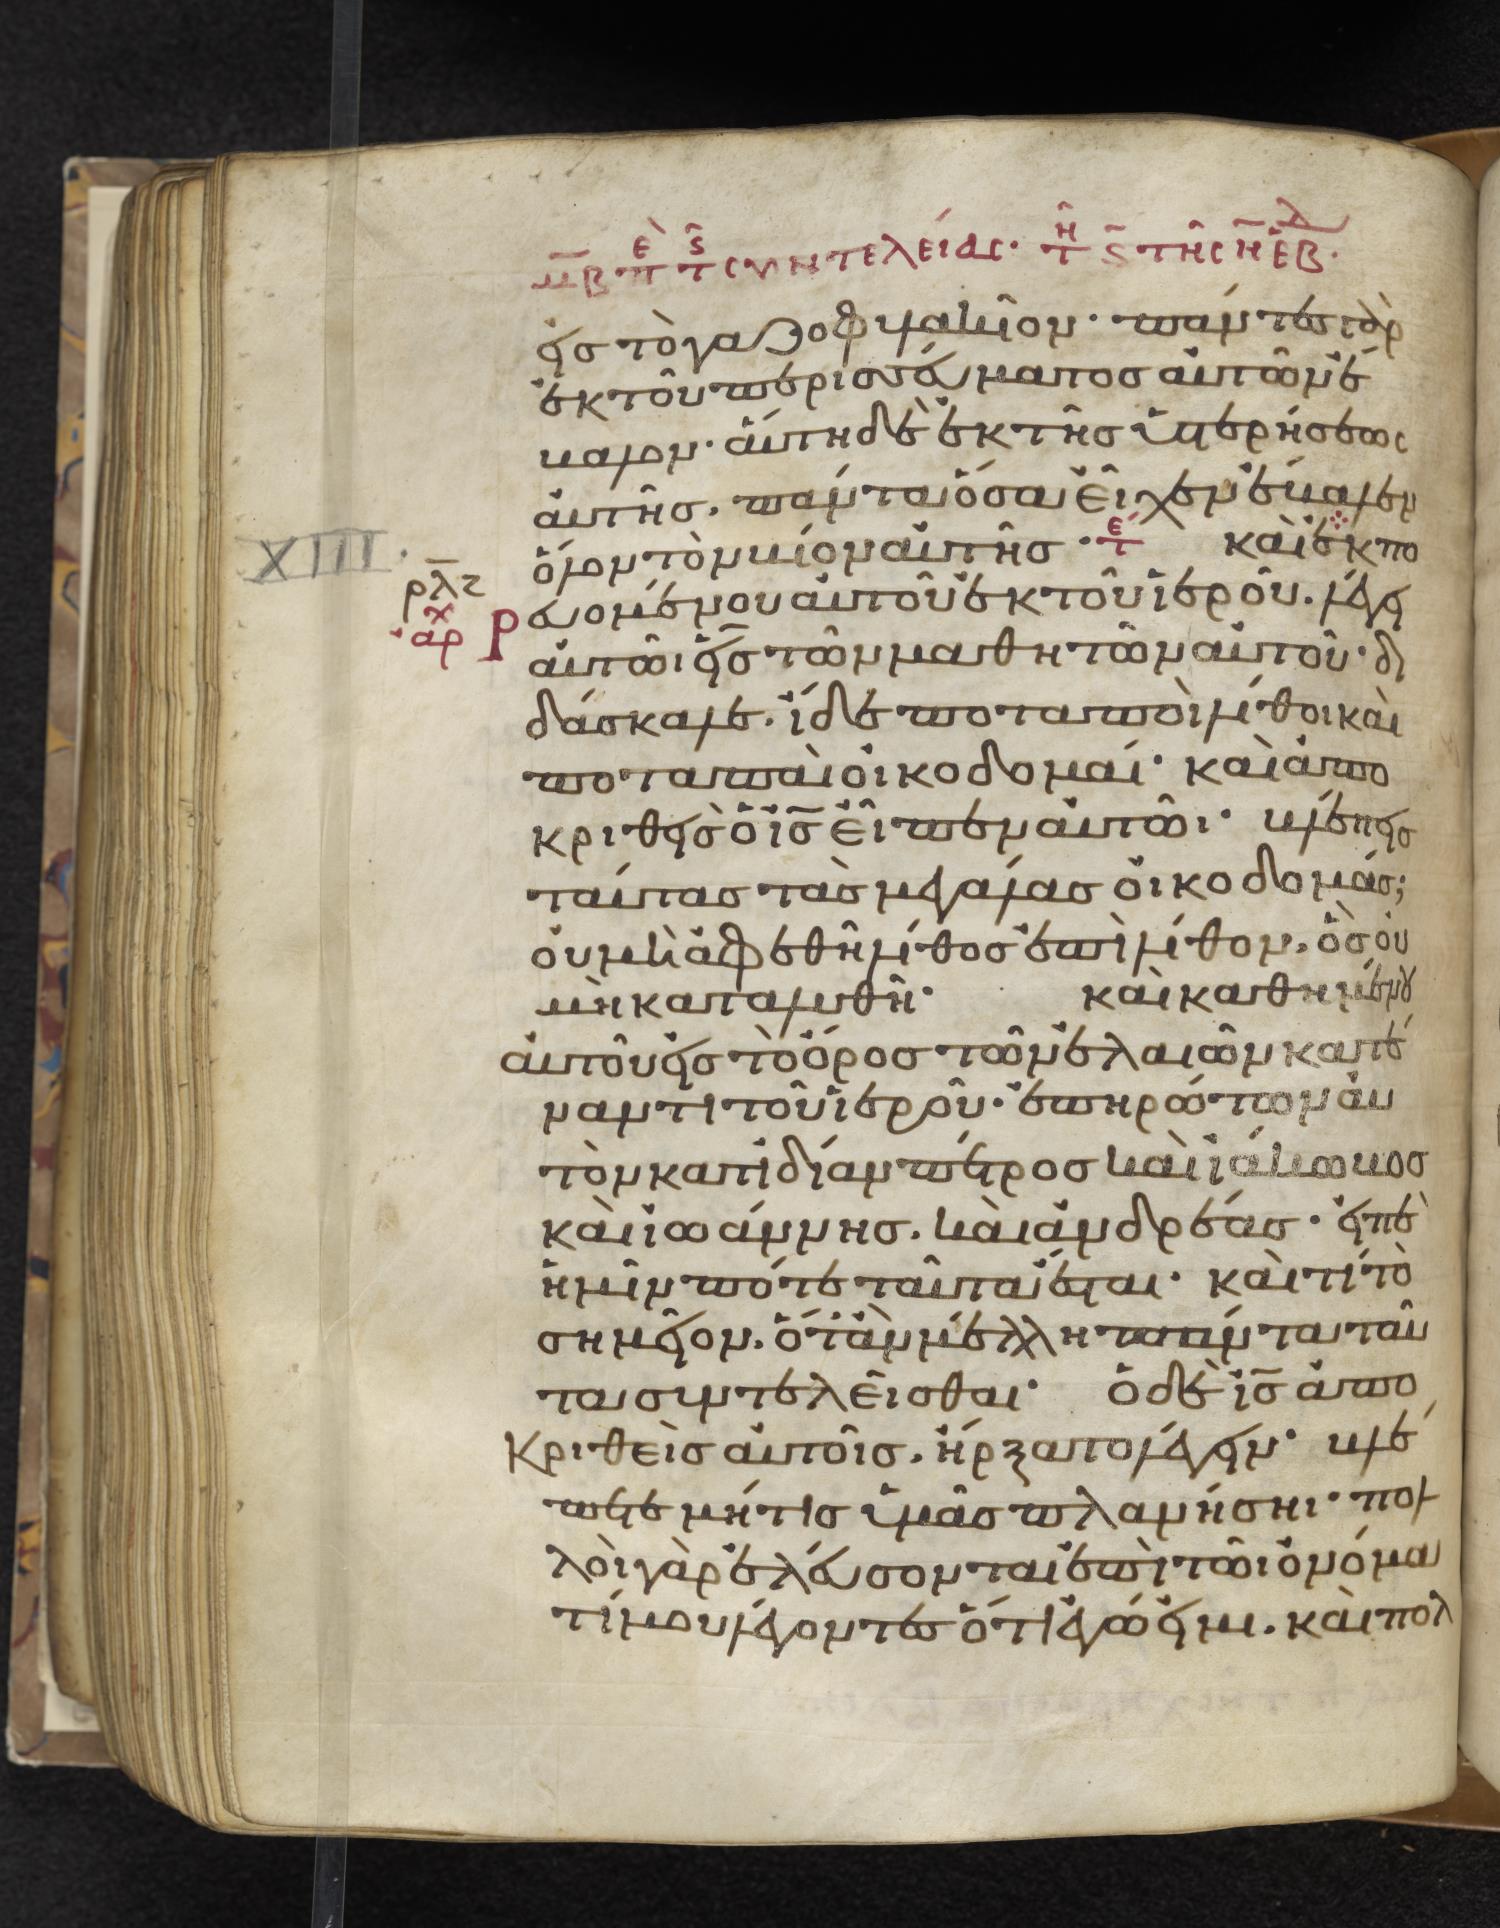 μβ περὶ τῆς συντελείας· τῇ ϛ τῆς η ἑβδ·
εἰς τὸ γαζοφυλάκιον· πάντες γὰρ
ἐκ τοῦ περισσεύματος αὐτῶν ἔ
βαλον· αὕτη δὲ ἐκ τῆς ὑστερήσεως
αὐτῆς. πάντα ὅσα εἶχεν ἔβαλεν
ὅλον τὸν βίον αὐτῆς· τε καὶ ἐκπο
XIII.
ρλζ
αρχ
ρευομένου αὐτοῦ ἐκ τοῦ ἱεροῦ. λέγει
αὐτῶι εἷς τῶν μαθητῶν αὐτοῦ· δι
δάσκαλε. ἴδε ποταποὶ λίθοι καὶ
ποταπαὶ οἰκοδομαί· καὶ ἀπο
κριθεὶς ὁ ις̅ εἶπεν αὐτῶι· βλέπεις
ταύτας τὰς μεγάλας οἰκοδομάς;
οὐ μὴ ἀφεθῆ λίθος ἐπὶ λίθον. ὃς οὐ
μὴ καταλυθῆ· καὶ καθημένου
αὐτοῦ εἰς τὸ ὄρος τῶν ἐλαιῶν κατέ
ναντι τοῦ ἱεροῦ· ἐπηρώτων αὐ
τὸν κατιδίαν πέτρος καὶ ἰάκωβος
καὶ ἰωάννης. καὶ ἀνδρέας· εἰπὲ
ἡμῖν πότε ταῦτα ἔσται· καὶ τί τὸ
σημεῖον. ὅταν μέλλη πάντα ταῦ
τα συντελεῖσθαι· ὁ δὲ ις̅ ἀπο
Κριθεὶς αὐτοῖς. ἤρξατο λέγειν· βλέ
πετε μήτις ὑμᾶς πλανήσηι· πολ
λοὶ γὰρ ἐλεύσονται ἐπὶ τῶι ὀνόμα
τί μου λέγοντες ὅτι ἐγώ εἰμι. καὶ πολ